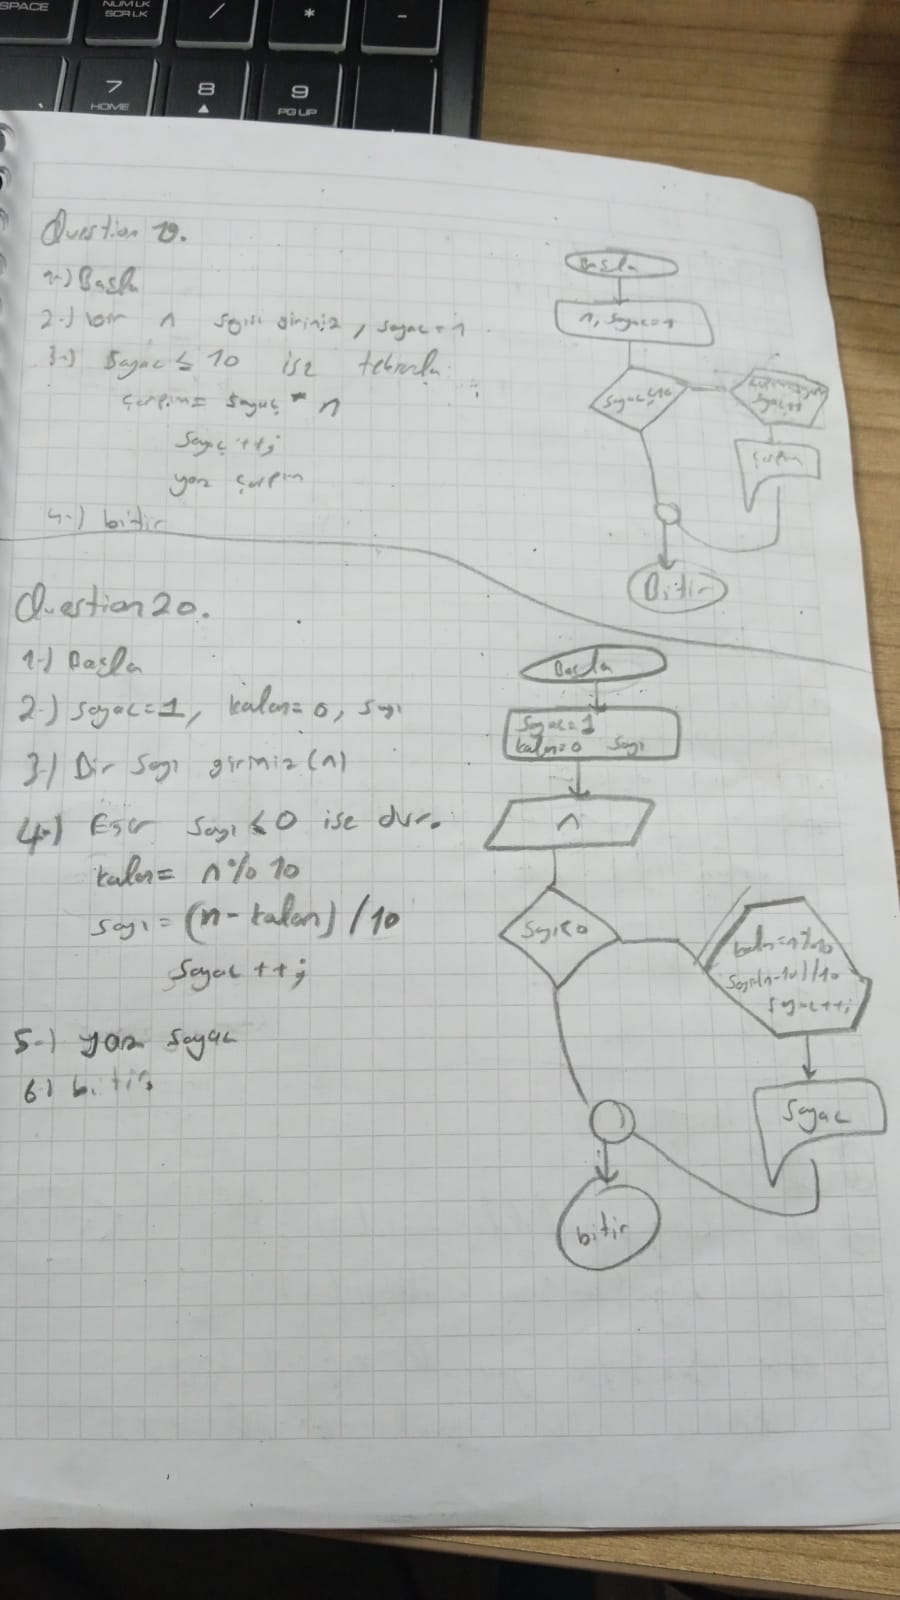 SPACE
NUM LK
SCR LK
/
*
-
7
HOME
8
9
PG UP
Question 19.
1-) Başla
2-) bir n sayısı giriniz, sayac=1
3-) Sayac ≤ 10 ise tekrarla
çarpım= sayaç * n
Sayaç ++;
yaz çarpım
4-) bitir
Başla
n, sayac=1
sayaç≤10
sayaç++
çarpım
Bitir
Question 20.
1-) Başla
2-) sayac=1, kalan=0, sayı
3-) Bir sayı giriniz (n)
4-) Eğer sayı ≤ 0 ise dur.
kalan= n % 10
sayı = (n - kalan) / 10
Sayac ++;
5-) yaz sayac
6-) bitir
Başla
Sayac=1
kalan=0 sayı
n
Sayı<0
kalan=n%10
sayac++;
Sayac
bitir